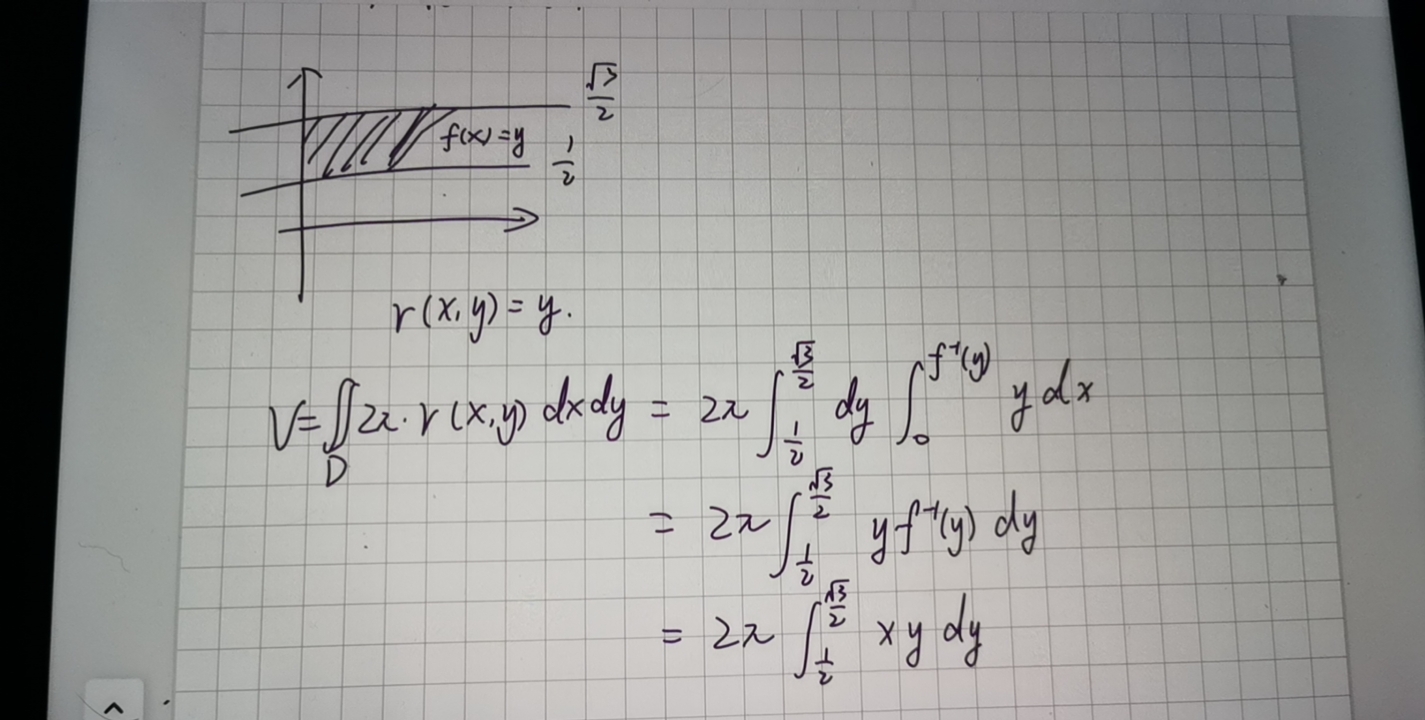 √3/2
f(x)=y
1/2
r(x,y)=y.
V=∬_D 2π·r(x,y) dxdy = 2π ∫_{1/2}^{√3/2} dy ∫_0^{f⁻¹(y)} y dx
= 2π ∫_{1/2}^{√3/2} y f⁻¹(y) dy
= 2π ∫_{1/2}^{√3/2} xy dy